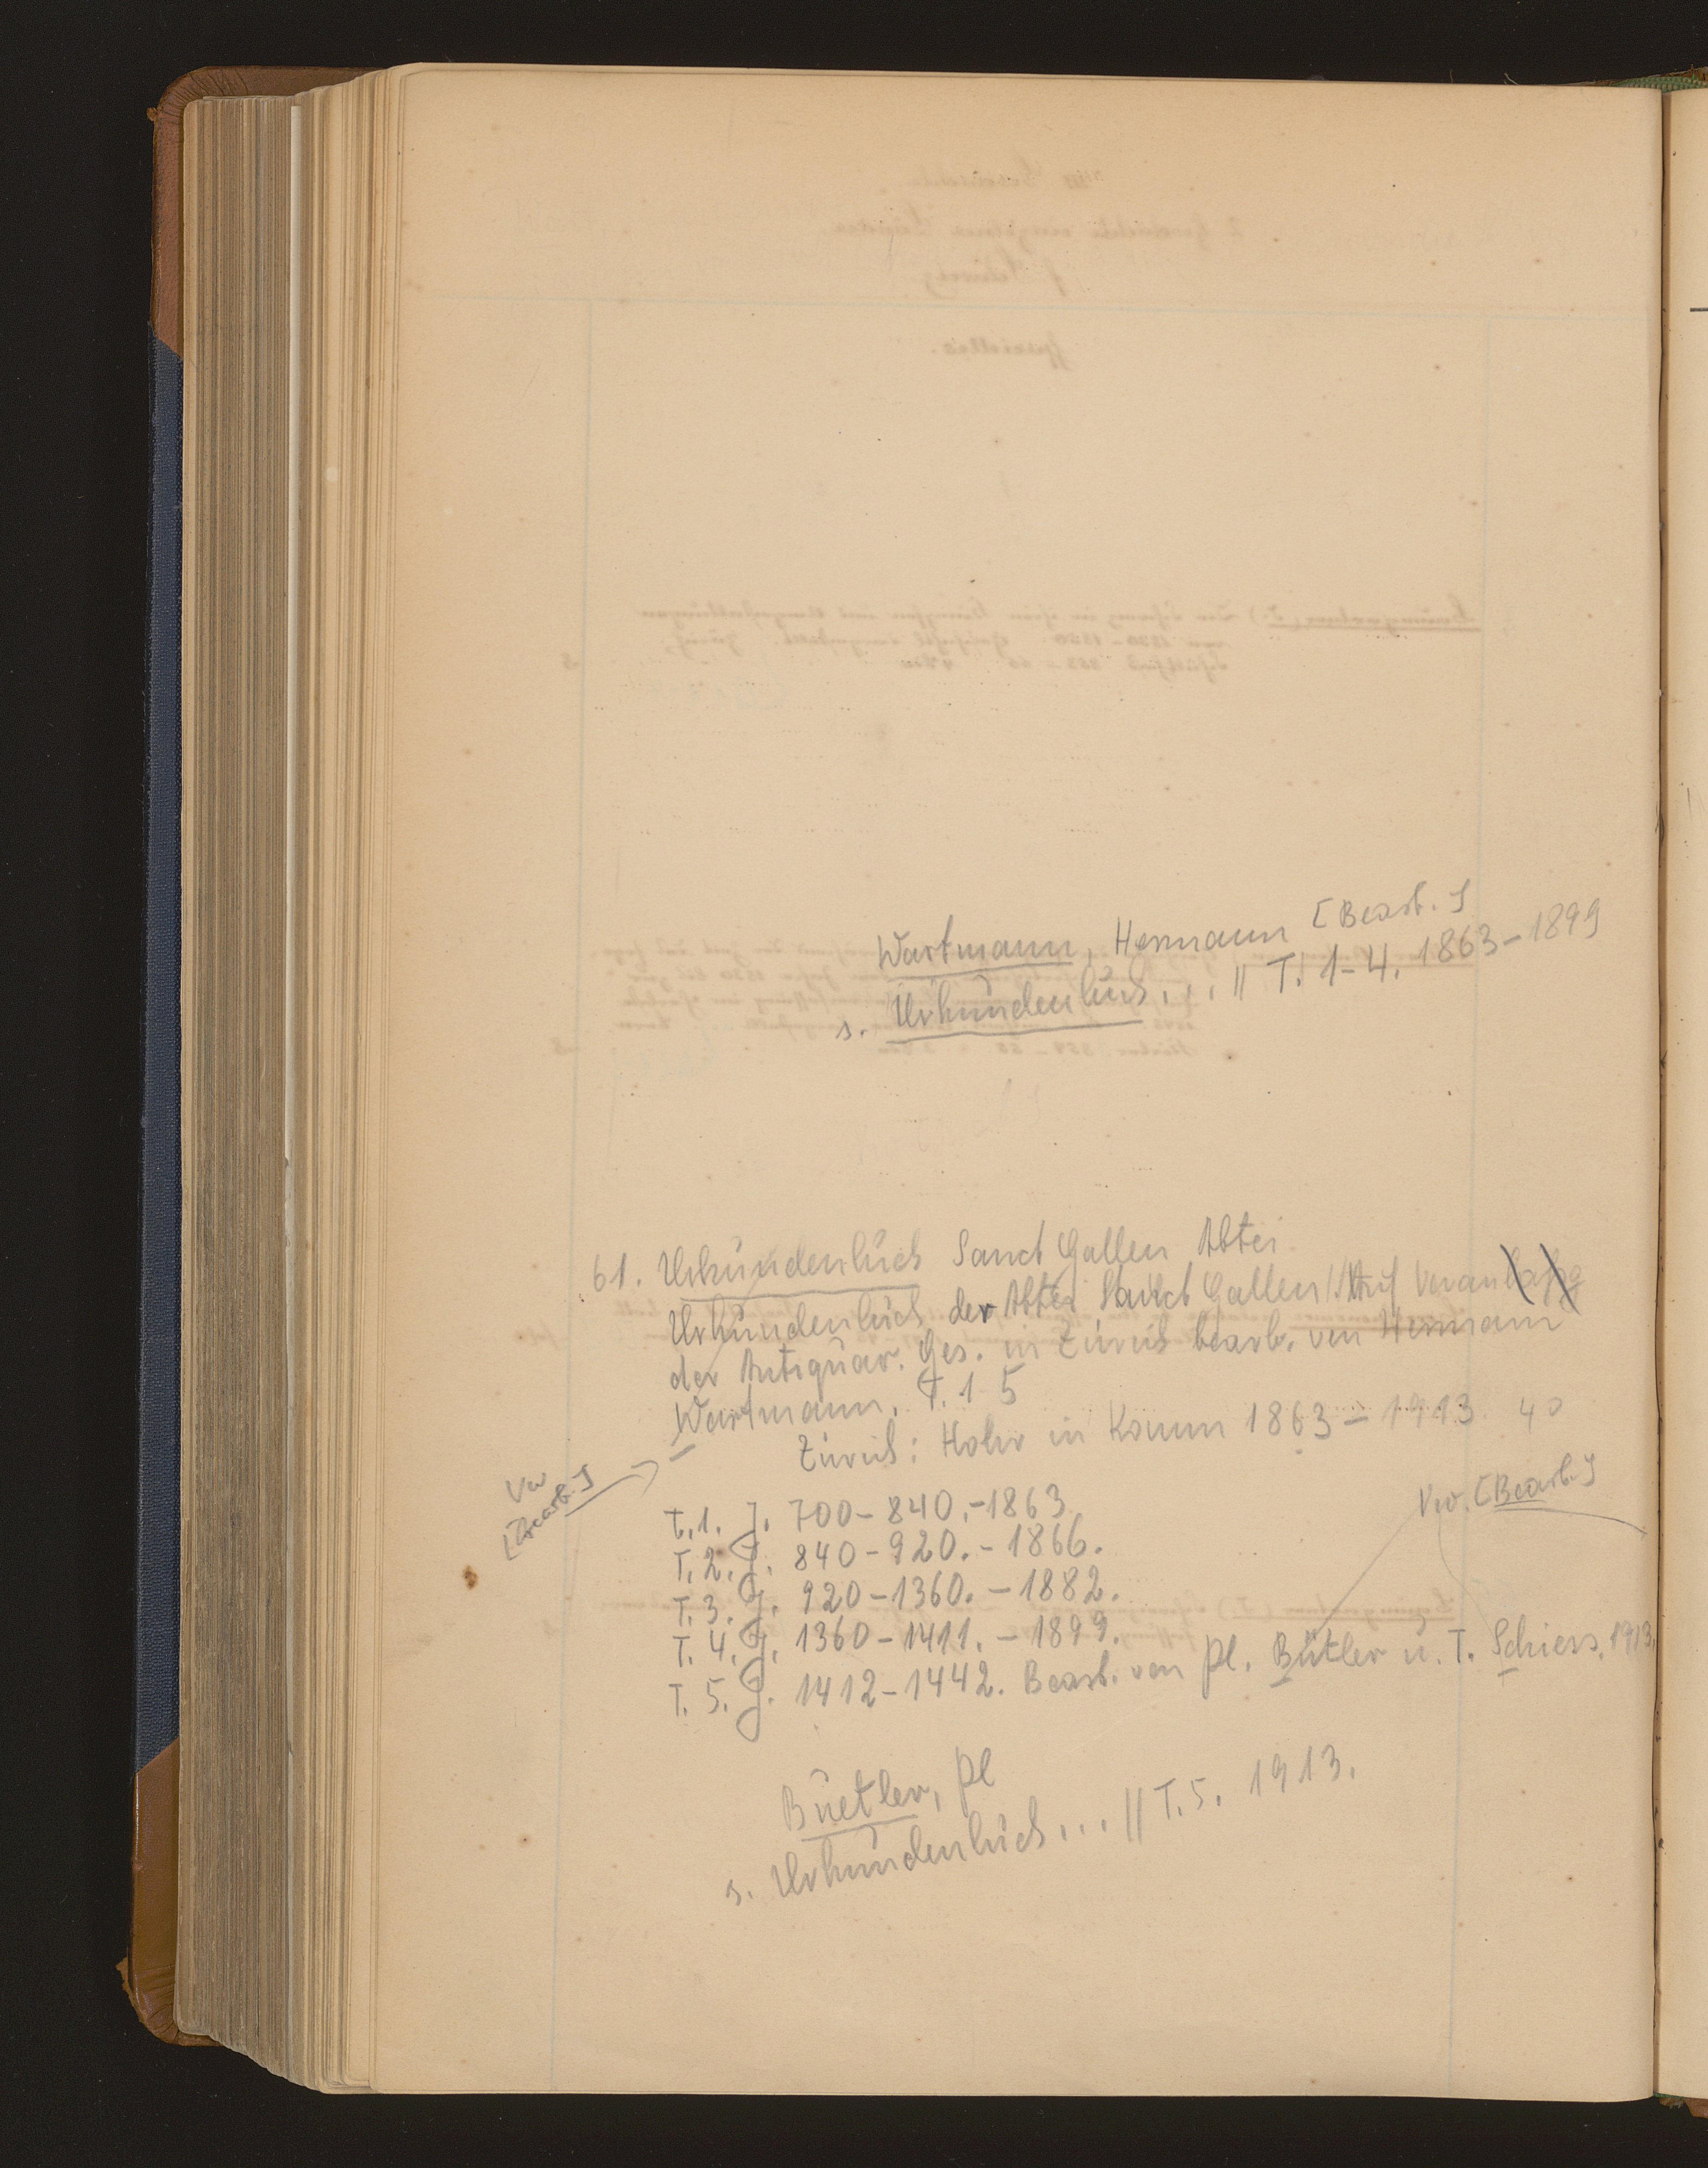 Wartmann, Hermann [Bearb.]
s. Urkundenbuch... || T. 1-4. 1863-1899
61. Urkundenbuch Sanct Gallen Abtei
Urkundenbuch der Abtei Sanct Gallen/ Auf Veran
der Antiquar. Ges. in Zürich bearb. von Hermann
Wartmann. T. 1-5
Zürich: Hohr in Komm 1863-1913 4°
Vw
[Bearb.]
Vw. [Bearb.]
T. 1. J. 700-840.-1863
T. 2. J. 840-920.-1866.
T. 3. J. 920-1360.-1882.
T. 4. J. 1360-1411.-1899.
T. 5. J. 1412-1442. Bearb. von Pl. Bütler u. T. Schiess. 1913.
Büetler, Pl
s. Urkundenbuch... || T. 5. 1913.